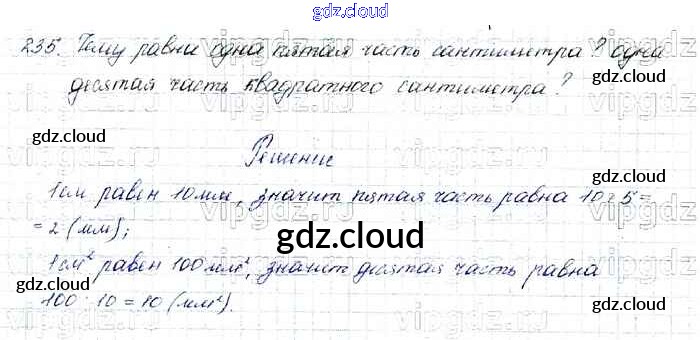 gdz.cloud
235. Чему равна одна пятая часть сантиметра? одна
gdz.cloud
десятая часть квадратного сантиметра?
gdz.cloud
Решение
gdz.cloud
1 см равен 10 мм, значит пятая часть равна 10 : 5 =
= 2 (мм);
gdz.cloud
1 см² равен 100 мм², значит десятая часть равна
100 : 10 = 10 (мм²).
gdz.cloud
gdz.cloud
gdz.cloud
vipgdz.ru